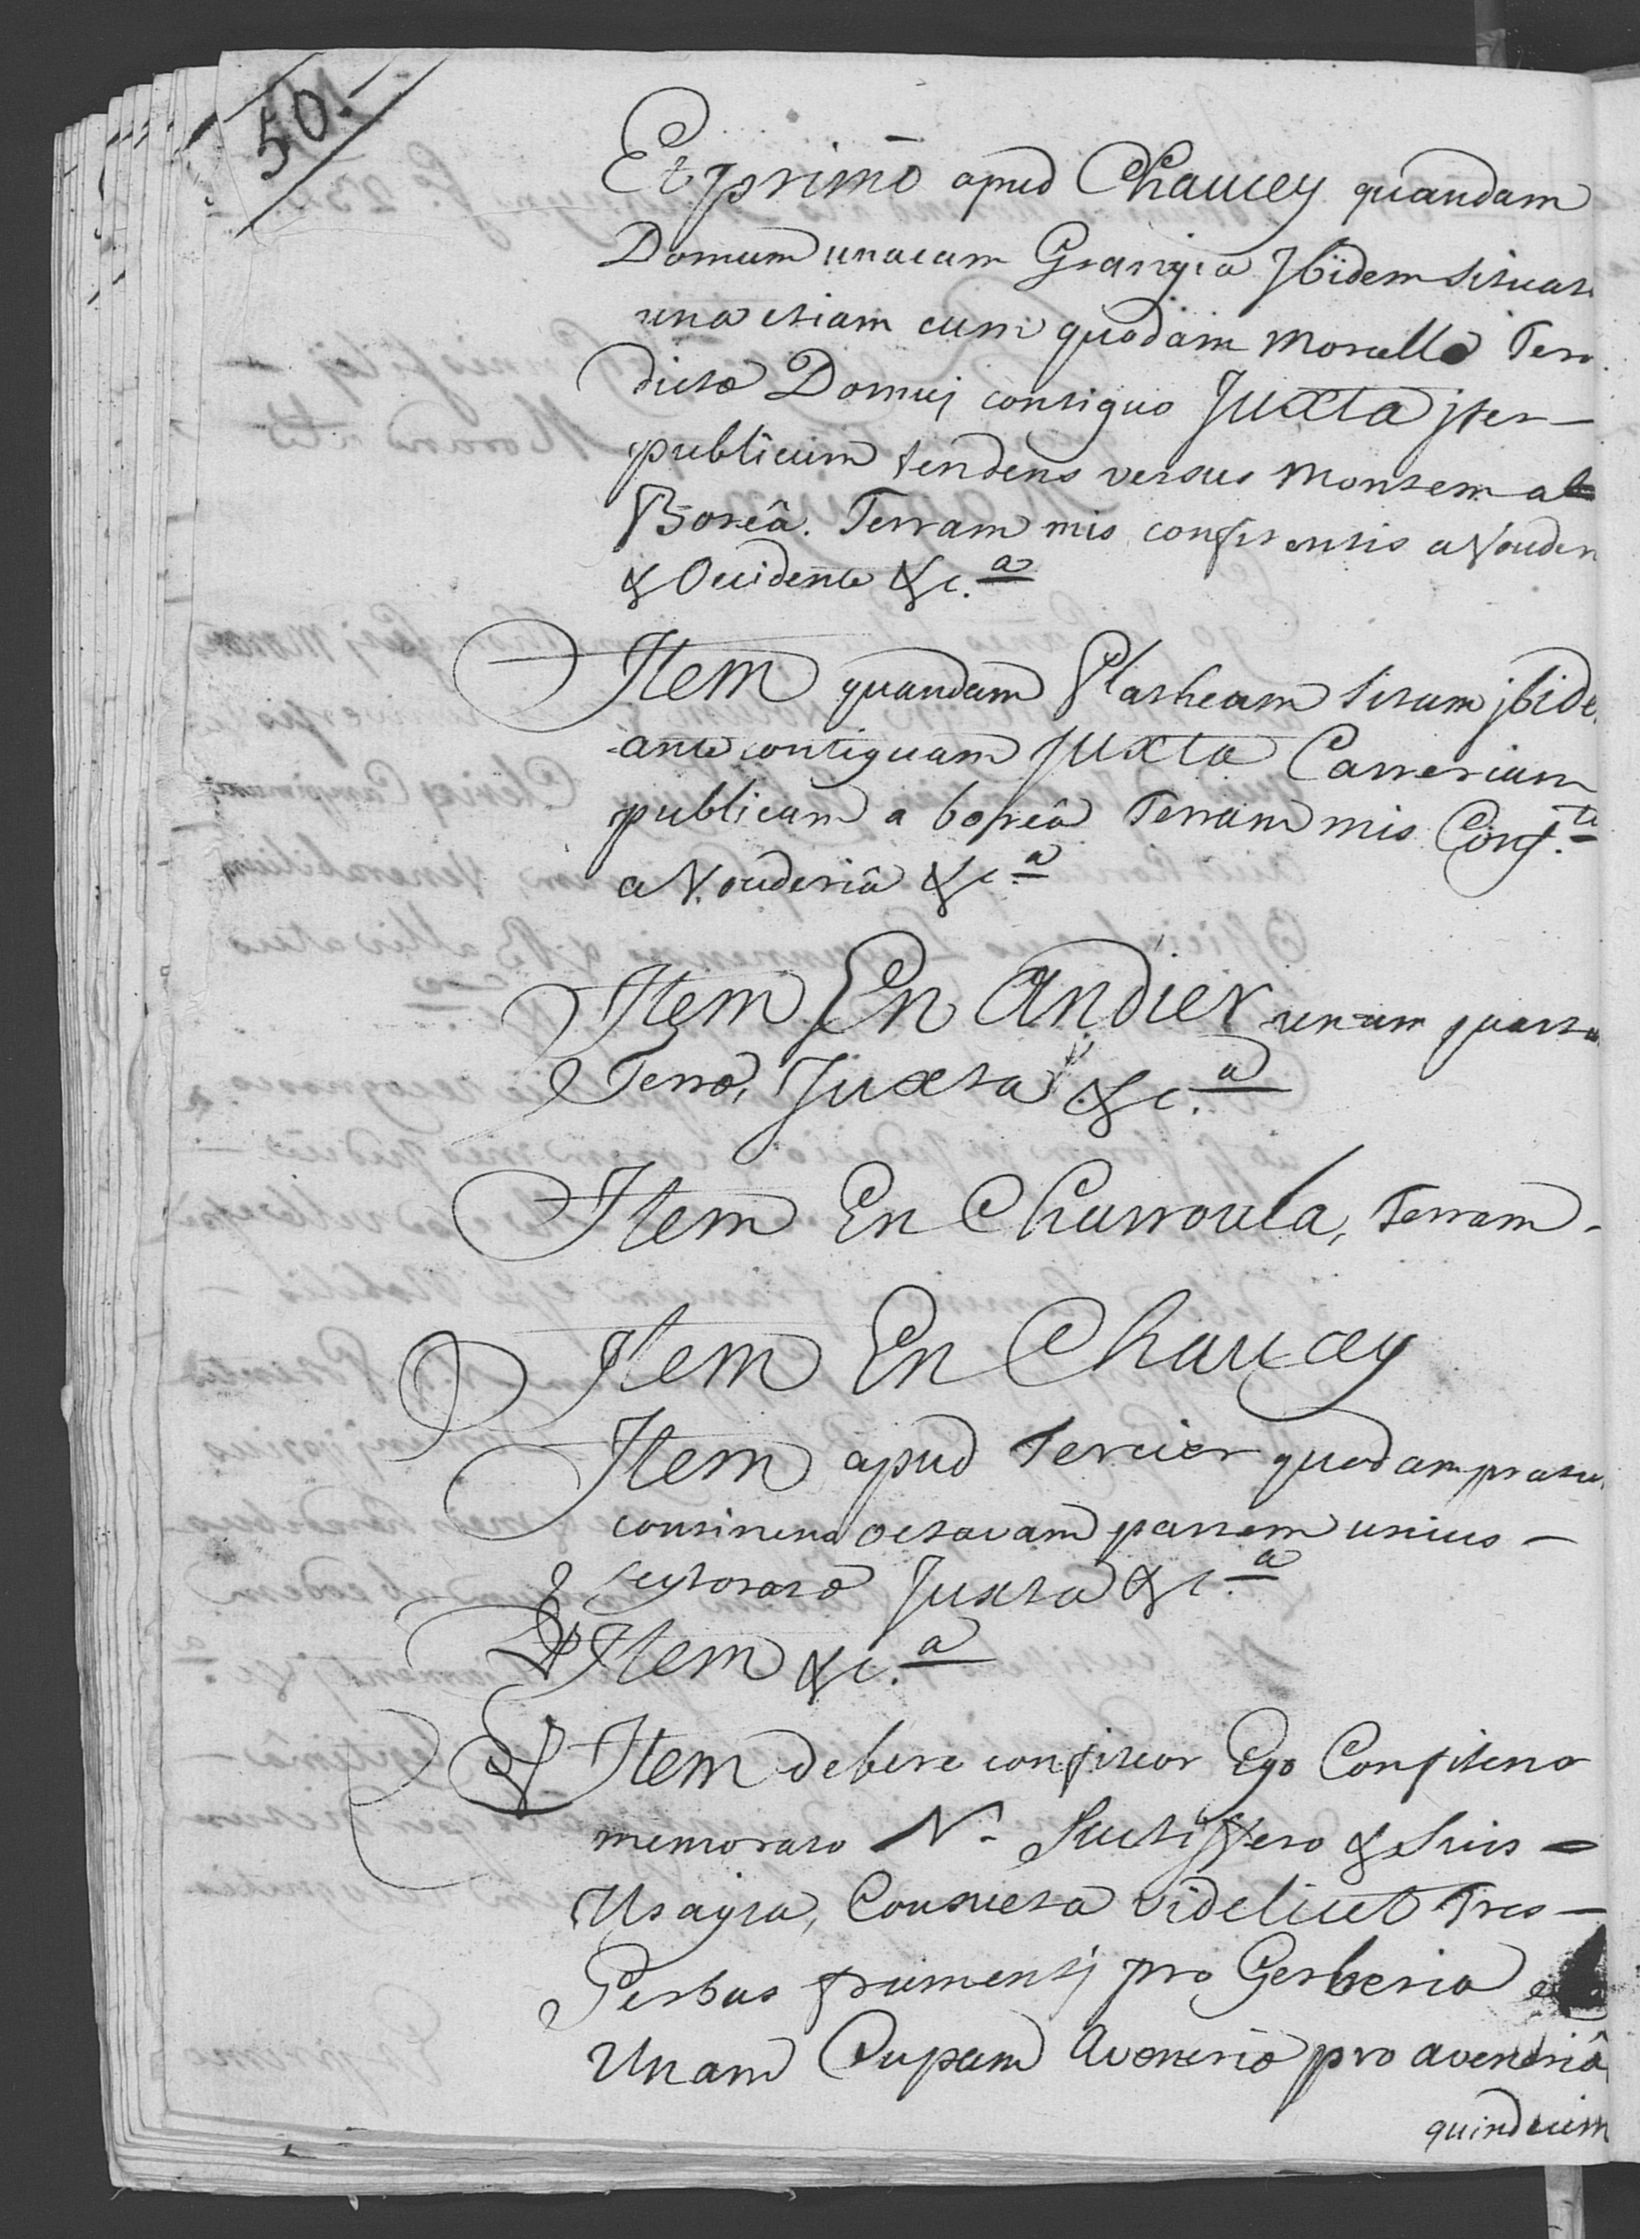 50.
Et primo apud Chaucey quandam
Domum unacum Grangia Jbidem situat
una etiam cum quodam morcello Terr
dictæ Domuj contiguo Juxta jter
publicum tendens versus montem a
Boreâ. Terram mis confitentis a Vouder
& Occidente &c.ª
Item quandam Platheam sitam jbide
ante contiguam Juxta Carreriam
publicam a boreâ Terram mis Conf.te
a Vouderiâ &c.ª
Item En Andier unam quart
Terræ, Juxta &c.ª
Item En Charroula, Terram
Item En Chaucey
Item apud Tercier quodam pratu
continens octavam partem unius
seytoratæ Juxta &c.ª
Item &c.ª
Item debere confiteor Ego Confitens
memorato N. & suis
Usagia, Consueta videlicet Tres
Gerbas frumentj pro Gerberia
Unam Cupam Avenæ pro aveneriâ
quindecim